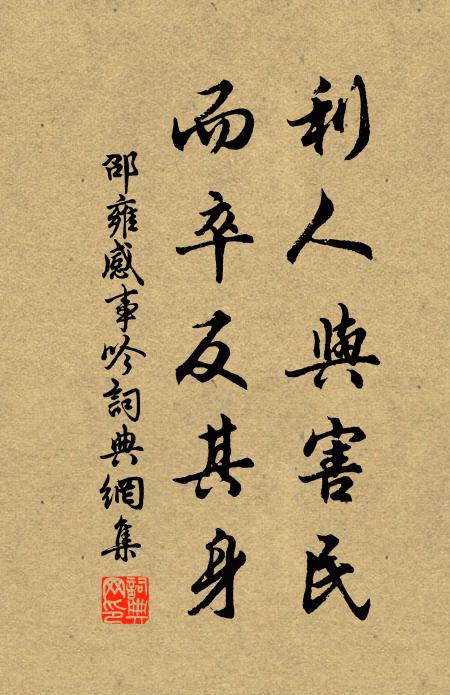 利人與害民
而卒反其身
邵雍感事吟詞典網集
詞典網印